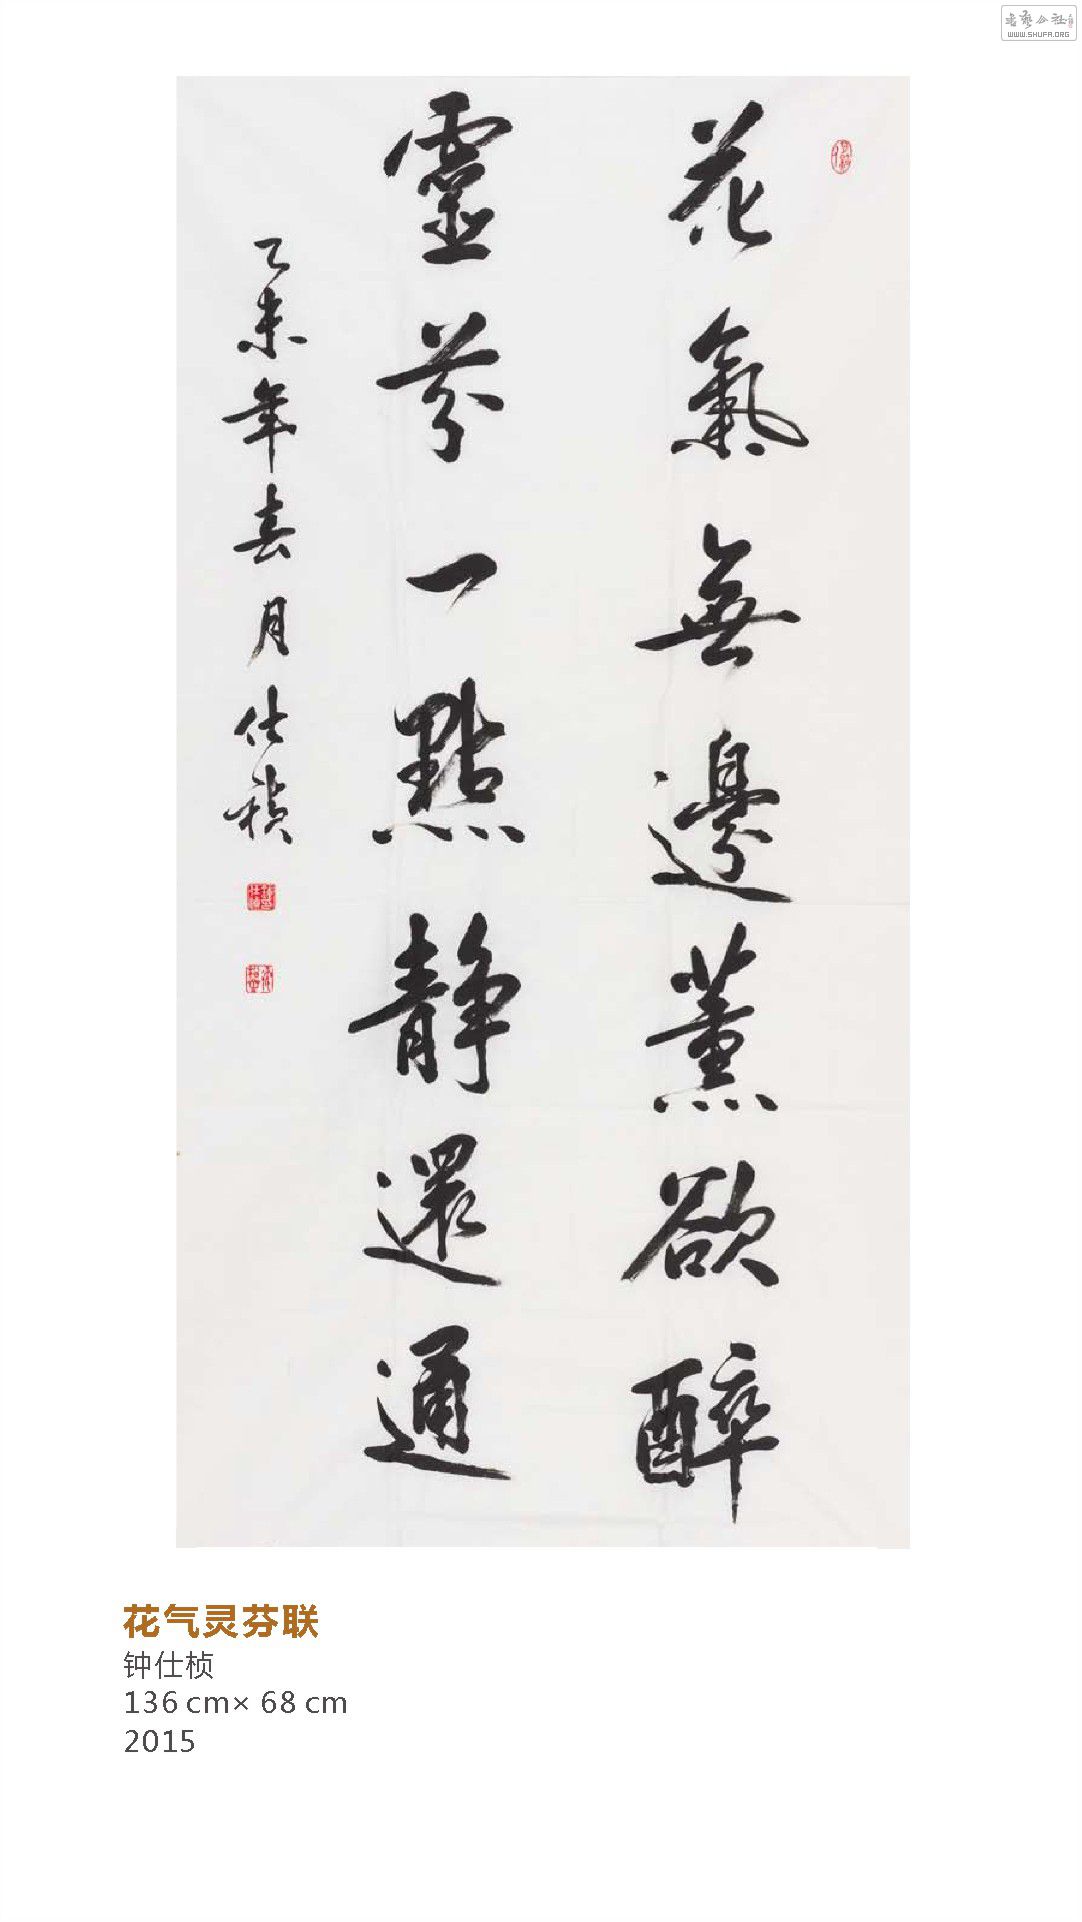 花氣無邊薰欲醉
靈芬一點靜還通
乙未年春月仕禎
花气灵芬联
钟仕桢
136 cm× 68 cm
2015
WWW.SHUFA.ORG